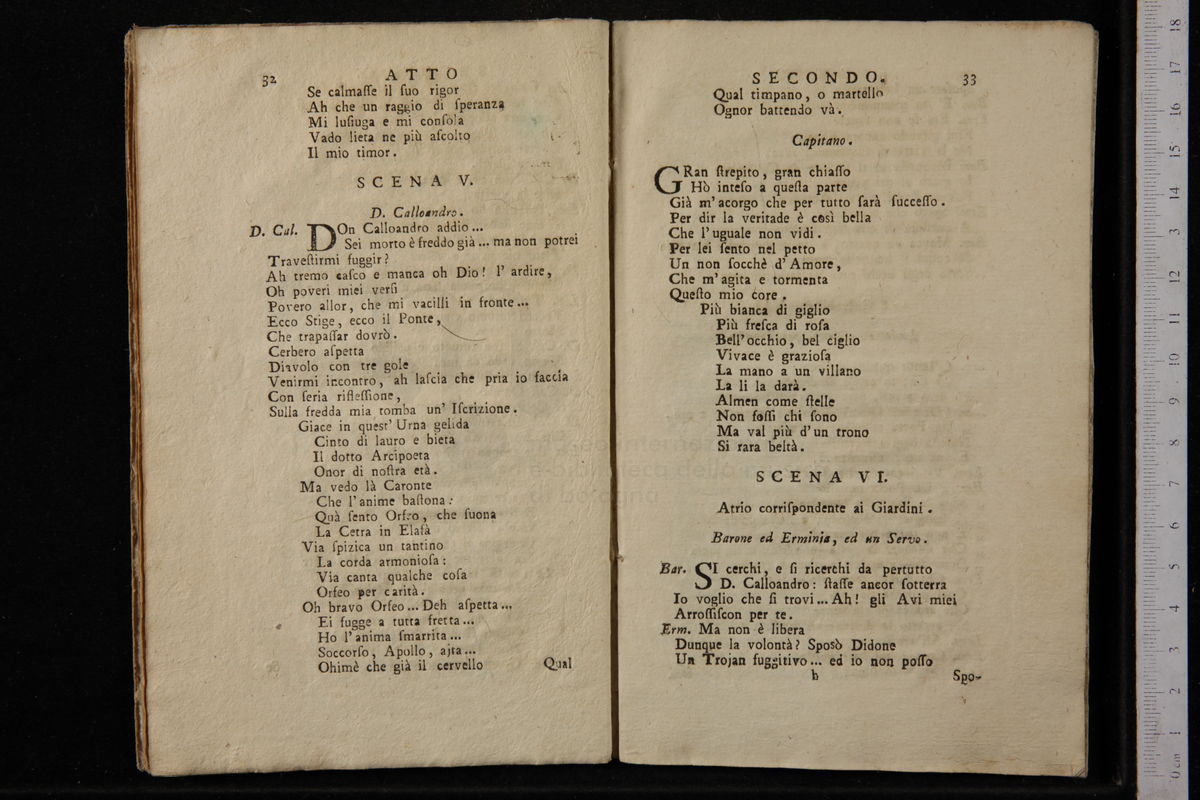 32
ATTO
Se calmaſſe il ſuo rigor
Ah che un raggio di ſperanza
Mi luſiuga e mi conſola
Vado lieta ne più aſcolto
Il mio timor.
SCENA V.
D. Calloandro.
D. Cal. DOn Calloandro addio...
Sei morto è freddo già... ma non potrei
Traveſtirmi fuggir?
Ah tremo caſco e manca oh Dio! l' ardire,
Oh poveri miei verſi
Povero allor, che mi vacilli in fronte...
Ecco Stige, ecco il Ponte,
Che trapaſſar dovrò.
Cerbero aſpetta
Diavolo con tre gole
Venirmi incontro, ah laſcia che pria io faccia
Con ſeria rifleſſione,
Sulla fredda mia tomba un' Iſcrizione.
Giace in queſt' Urna gelida
Cinto di lauro e bieta
Il dotto Arcipoeta
Onor di noſtra età.
Ma vedo là Caronte
Che l'anime baſtona:
Quà ſento Orfeo, che ſuona
La Cetra in Elafà
Via ſpizica un tantino
La corda armonioſa:
Via canta qualche coſa
Orfeo per carità.
Oh bravo Orfeo... Deh aſpetta...
Ei fugge a tutta fretta...
Ho l'anima ſmarrita...
Soccorſo, Apollo, ajta...
Ohimè che già il cervello
Qual
SECONDO.
33
Qual timpano, o martello
Ognor battendo và.
Capitano.
GRan ſtrepito, gran chiaſſo
Hò inteſo a queſta parte
Già m'acorgo che per tutto ſarà ſucceſſo.
Per dir la veritade è così bella
Che l'uguale non vidi.
Per lei ſento nel petto
Un non ſocchè d'Amore,
Che m'agita e tormenta
Queſto mio core.
Più bianca di giglio
Più freſca di roſa
Bell'occhio, bel ciglio
Vivace è grazioſa
La mano a un villano
La li la darà.
Almen come ſtelle
Non foſſi chi ſono
Ma val più d'un trono
Si rara beltà.
SCENA VI.
Atrio corriſpondente ai Giardini.
Barone ed Erminia, ed un Servo.
Bar. SI cerchi, e ſi ricerchi da pertutto
D. Calloandro: ſtaſſe ancor ſotterra
Io voglio che ſi trovi... Ah! gli Avi miei
Arroſſiſcon per te.
Erm. Ma non è libera
Dunque la volontà? Sposò Didone
Un Trojan fuggitivo... ed io non poſſo
b
Spo-